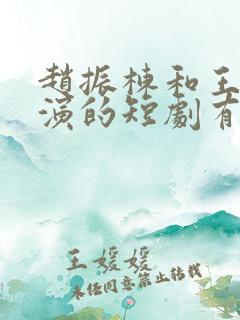 趙振棟和王
演的短劇有
王媛媛
未经同意禁止转载